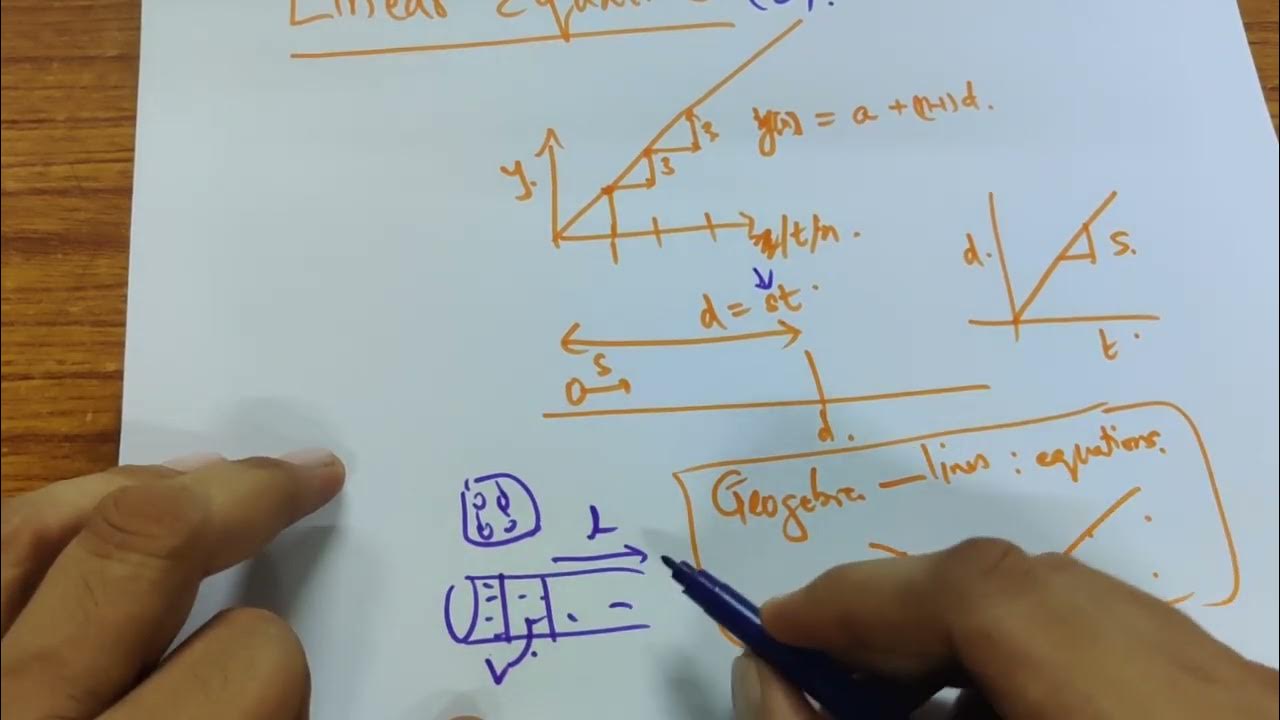 Linear Equations
y(n) = a + (n-1)d.
3
3
y.
x/t/n.
d.
S.
t.
d = st.
s
d.
Geogebra — lines : equations.
L
V